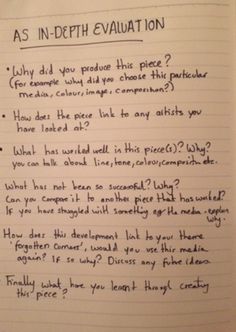 AS IN-DEPTH EVALUATION
• Why did you produce this piece?
(for example why did you choose this particular
media, colour, image, composition?)
• How does the piece link to any artists you
have looked at?
• What has worked well in this piece(s)? Why?
you can talk about line, tone, colour, composition etc.
What has not been so successful? Why?
Can you compare it to another piece that has worked?
If you have struggled with something eg the media - explain
why.
How does this development link to your theme
'forgotten corners', would you use this media
again? If so why? Discuss any future ideas
Finally what have you learnt through creating
this piece?